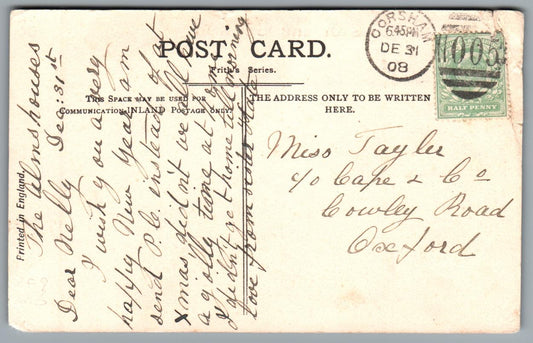 POST CARD.
Frith's Series.
THIS SPACE MAY BE USED FOR
COMMUNICATION INLAND POSTAGE ONLY.
THE ADDRESS ONLY TO BE WRITTEN
HERE.
Printed in England.
CORSHAM
6.45PM
DE 31
08
005
HALF PENNY
The Almshouses
Dec: 31st
Dear Nelly
I wish you a very
happy New Year. I am
send P.C. instead of at
Xmas, didn't we all have
a jolly time at
I didn't get home till morning
Love from sister
Miss Tayler
c/o Cape & Co
Cowley Road
Oxford